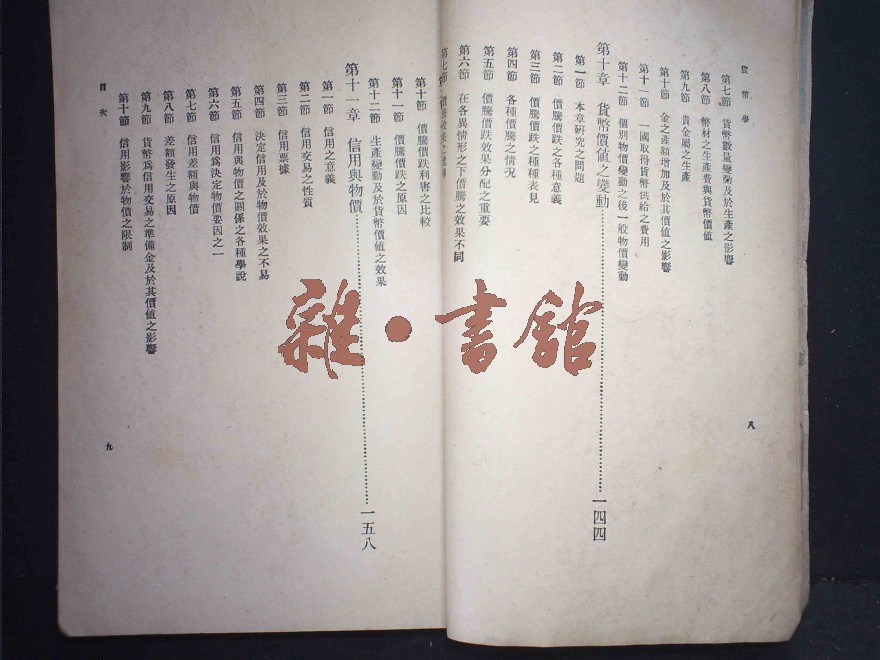 貨幣學
第七節 貨幣數量變動及於生產之影響
第八節 幣材之生產費與貨幣價值
第九節 貴金屬之生產
第十節 金之產額增加及於其價值之影響
第十一節 一國取得貨幣供給之費用
第十二節 個別物價變動之後一般物價變動
第十章 貨幣價值之變動 一四四
第一節 本章研究之問題
第二節 價騰價跌之各種意義
第三節 價騰價跌之種種表見
第四節 各種價騰之情況
第五節 價騰價跌效果分配之重要
第六節 在各異情形之下價騰之效果不同
八
第七節
第十節 價騰價跌利害之比較
第十一節 價騰價跌之原因
第十二節 生產變動及於貨幣價值之效果
第十一章 信用與物價 一五八
第一節 信用之意義
第二節 信用交易之性質
第三節 信用票據
第四節 決定信用及於物價效果之不易
第五節 信用與物價之關係之各種學說
第六節 信用爲決定物價要因之一
第七節 信用差額與物價
第八節 差額發生之原因
第九節 貨幣爲信用交易之準備金及於其價值之影響
第十節 信用影響於物價之限制
目次
九
雜·書館